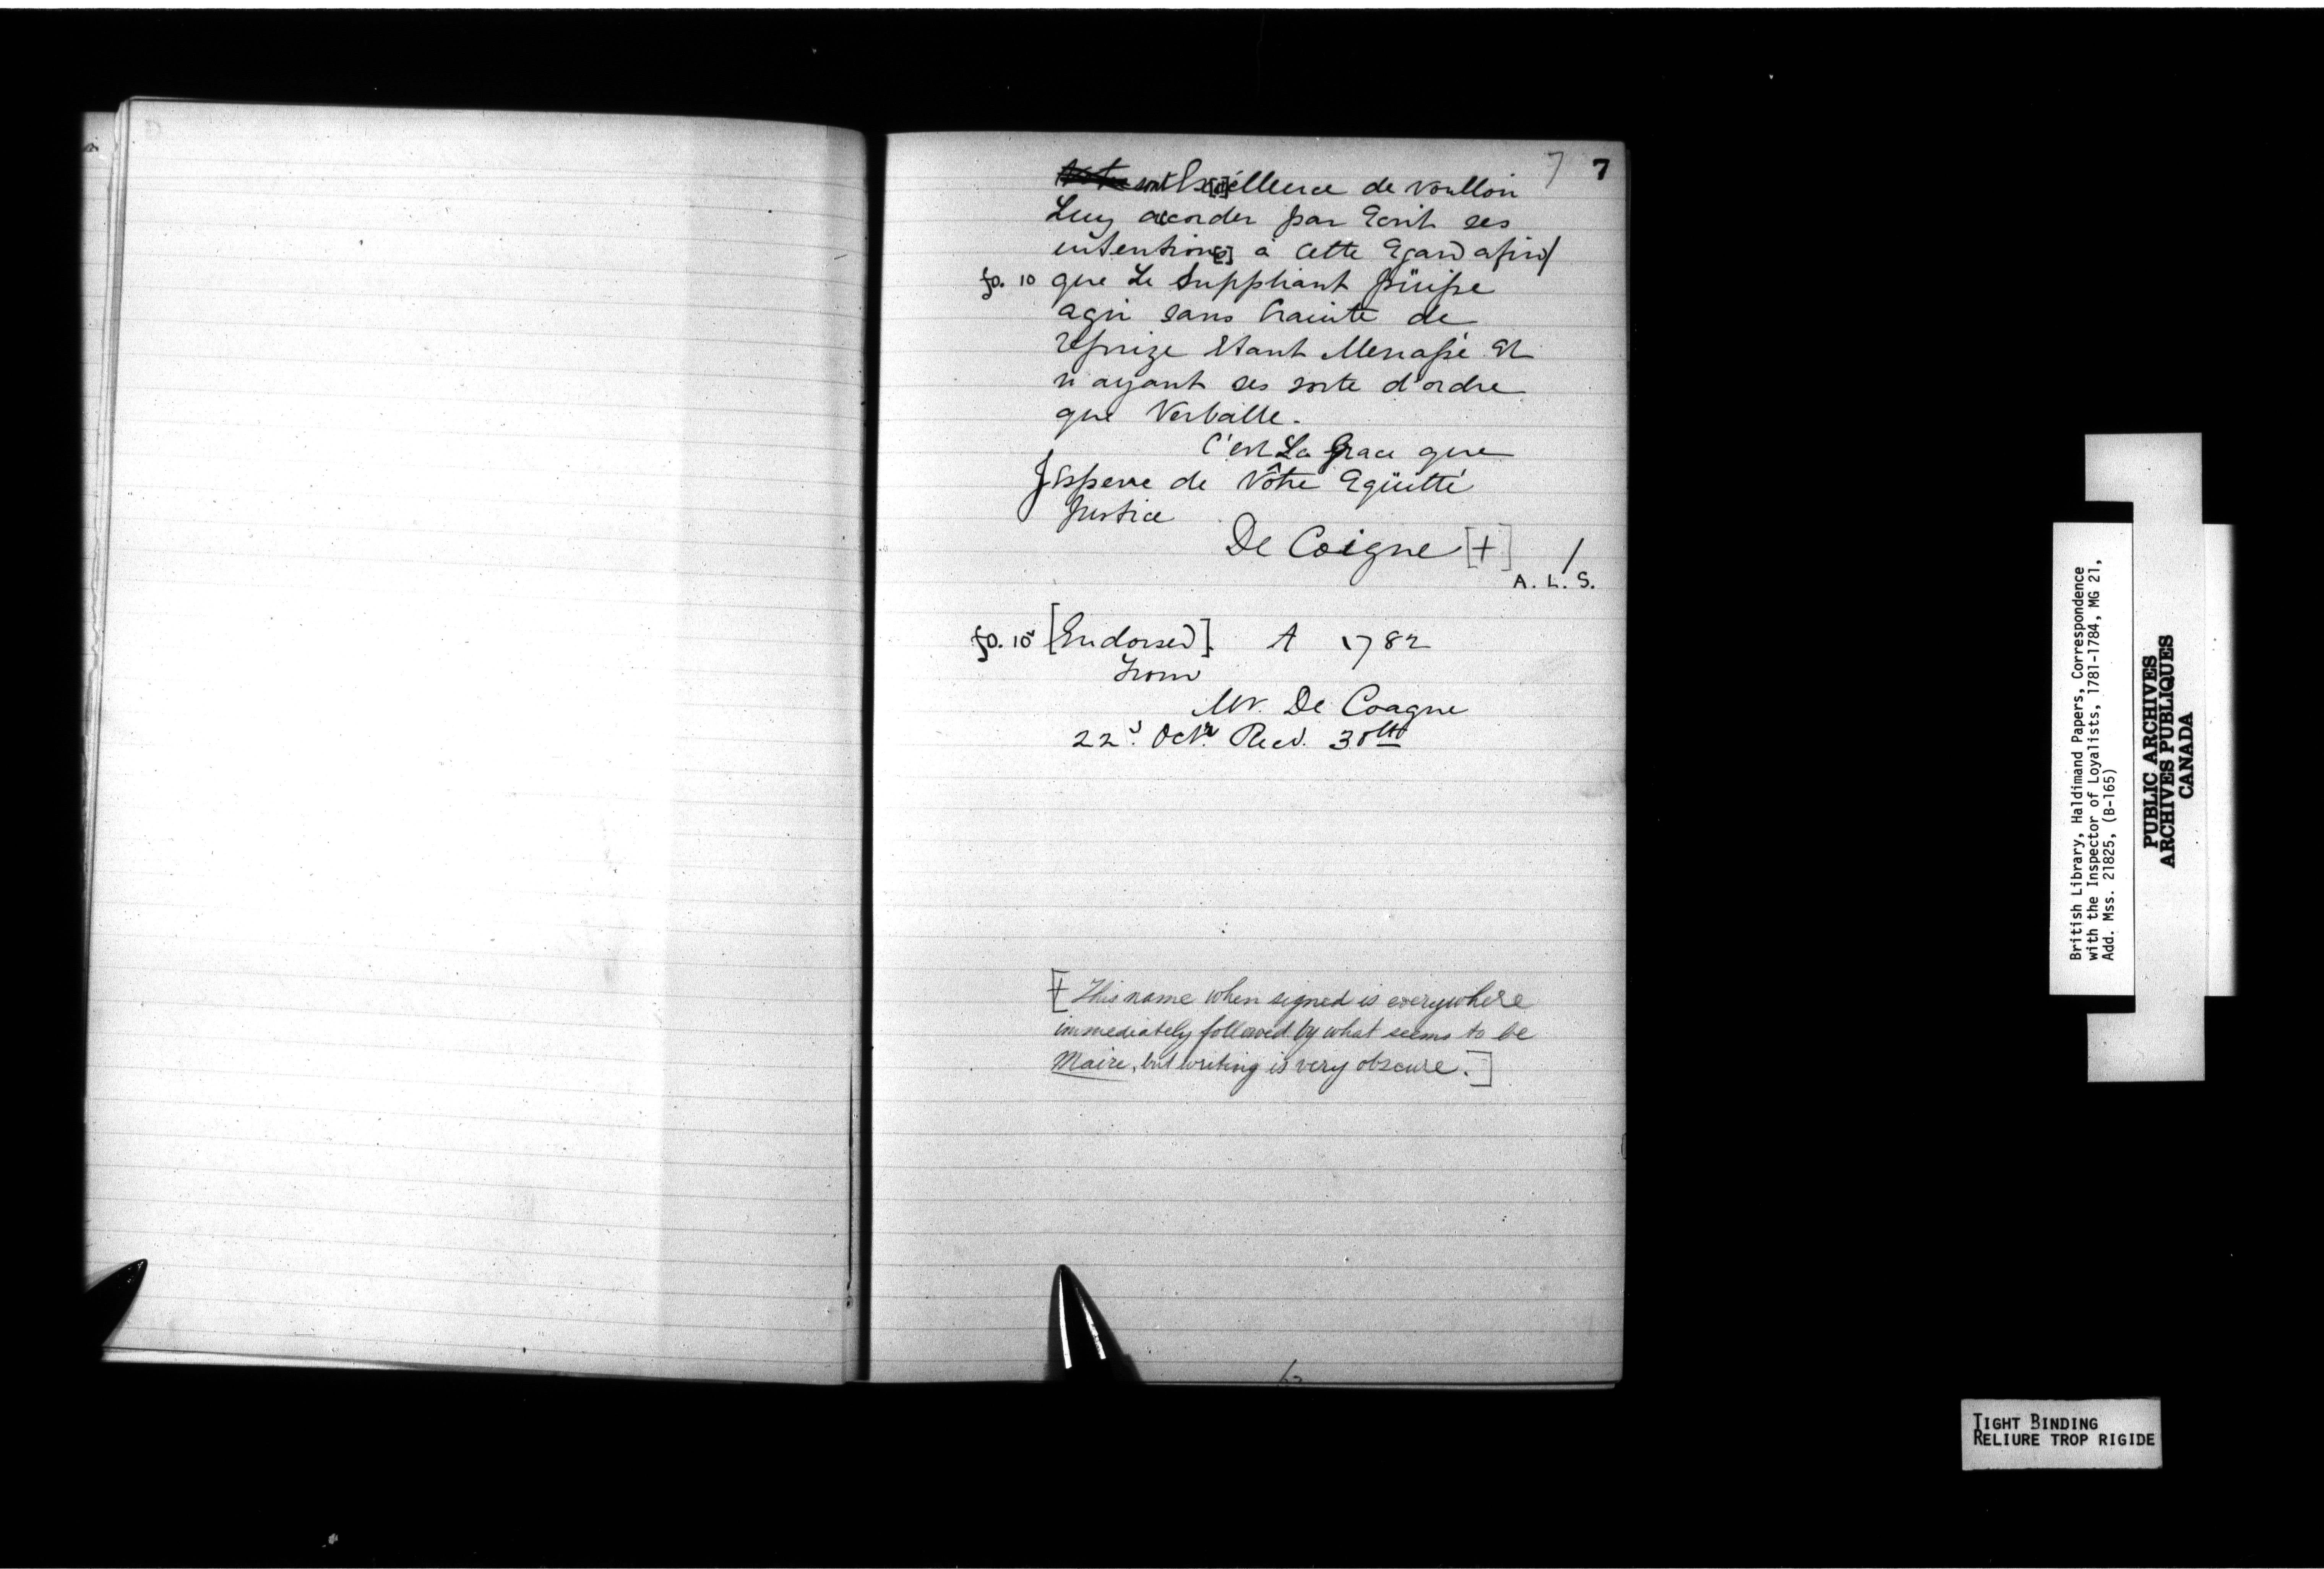 7 7
~~Votre~~ son Ex[c]éllence de voulloir
Luy accorder par Ecrit ses
intention[s] à cette Egard afin/
fo. 10 que Le Suppliant püisse
agir sans Crainte de
reprize Etant Menassé Et
n ayant ses sorte d'ordre
que Verballe.
C'est La Grace que
J Espere de Vôtre Eqüitté
Justice
De Coigne [+] /
A. L. S.
fo. 10v [Endorsed]. A 1782
From
Mr. De Coagne
22d. Octr. Recd. 30th
[+ This name when signed is everywhere
immediately followed by what seems to be
Maire, but writing is very obscure.]
British Library, Haldimand Papers, Correspondence
with the Inspector of Loyalists, 1781-1784, MG 21,
Add. Mss. 21825, (B-165)
PUBLIC ARCHIVES
ARCHIVES PUBLIQUES
CANADA
TIGHT BINDING
RELIURE TROP RIGIDE